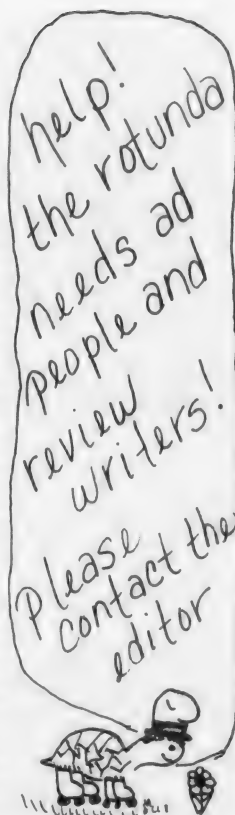 help!
the rotunda
needs ad
people and
review
writers!
Please
contact the
editor